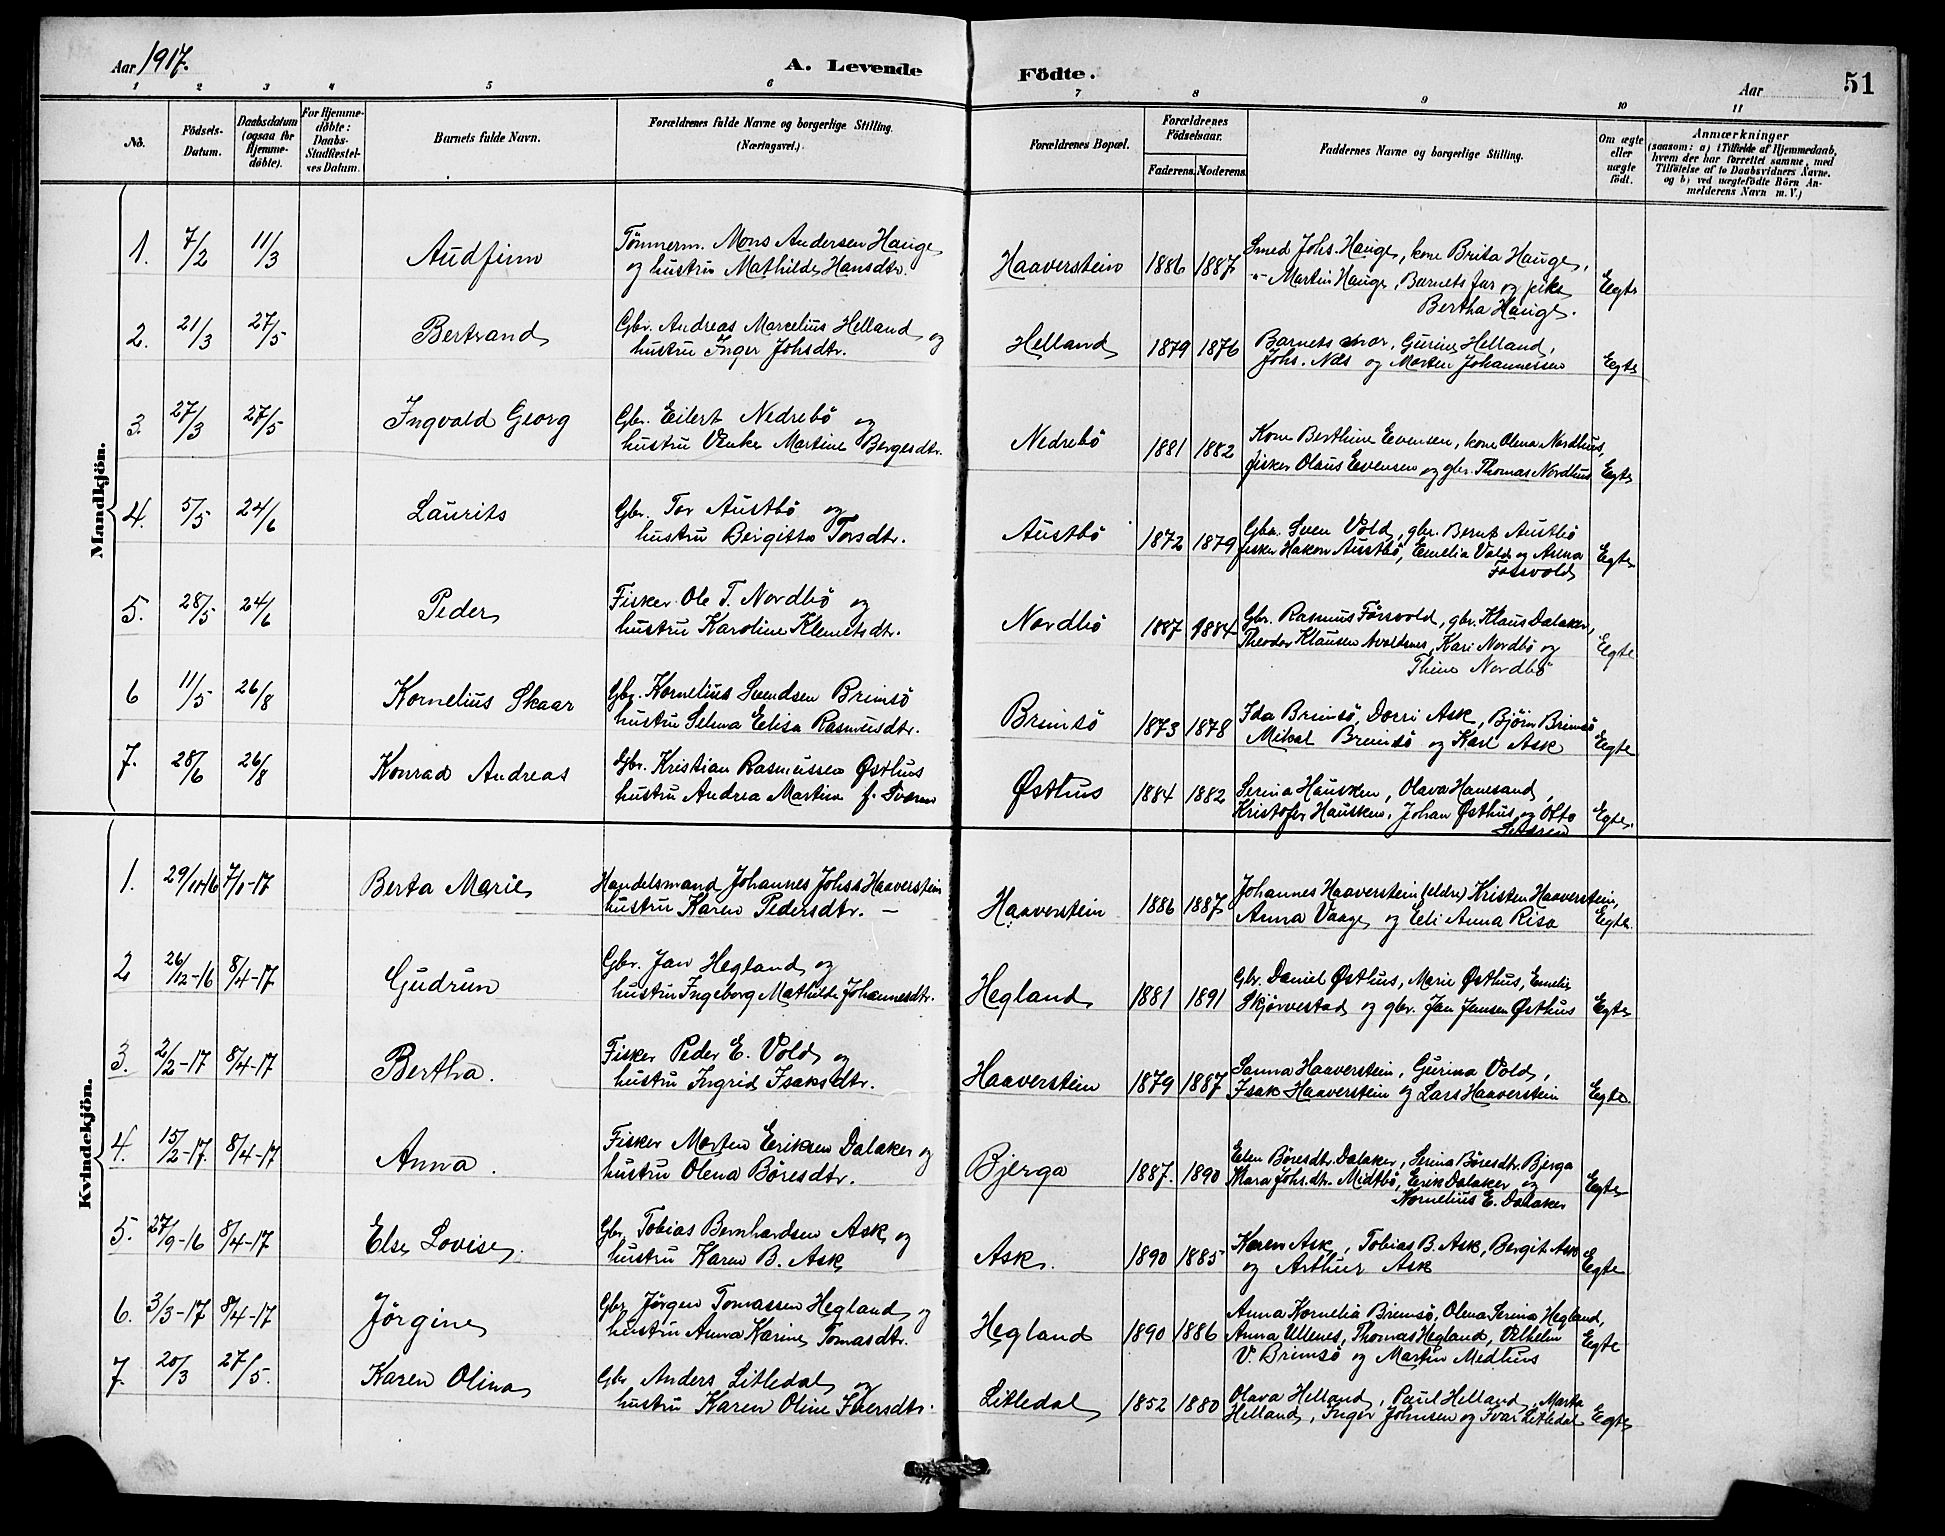 Aar 1917.
A. Levende Födte.
Aar 51
1 2 3 4 5 6 7 8 9 10 11
No.
Födsels-Datum.
Daabsdatum (ogsaa for Hjemme-döbte).
For Hjemme-döbte: Daabs-Stadfæstel-ses Datum.
Barnets fulde Navn.
Forældrenes fulde Navne og borgerlige Stilling. (Næringsvei.)
Forældrenes Bopæl.
Forældrenes Födselsaar.
Faderens. Moderens.
Faddernes Navne og borgerlige Stilling.
Om ægte eller uægte födt.
Anmærkninger (saasom: a) i Tilfælde af Hjemmedaab, hvem der har forrettet samme, med Tilföielse af to Daabsvidners Navne, og b) ved uægtefödte Börn An-melderens Navn m. V.)
Mandkjön.
1. 7/2 11/3 Audfinn
Tömmerm. Mons Andersen Hauge
og hustru Mathilde Hansdtr.
Haaverstein 1886 1887
Smed Johs. Hauge, kone Brita Hauge,
-"- Martin Hauge, Barnets far og pike
Bertha Hauge.
Egte
2. 21/3 27/5 Bertrand
Gbr. Andreas Marcelius Helland og
hustru Inger Johsdtr.
Helland 1879 1876
Barnets mor, Gurine Helland,
Johs. Næs og Morten Johannessen
Egte
3. 27/3 27/5 Ingvald Georg
Gbr. Eilert Nedrebö og
hustru Venke Martine Bergesdtr.
Nedrebö 1881 1882
Kone Berthine Evensen, kone Olena Nordhus,
fisker Olaus Evensen og gbr. Thomas Nordhus
Egte
4. 5/5 24/6 Laurits
Gbr. Tor Austbö og
hustru Birgitte Torsdtr.
Austbö 1872 1879
Gbr. Sven Vold, gbr. Bernt Austbö
fisker Hakon Austbö, Emelia Vold og Anna
Fossvold
Egte
5. 28/5 24/6 Peder
Fisker Ole T. Nordbö og
hustru Karoline Klemetsdtr.
Nordbö 1887 1884
Gbr. Rasmus Försvold, gbr. Klaus Dalaker,
Theodor Klausen Avaldsnes, Kari Nordbö og
Thine Nordbö
Egte
6 11/5 26/8 Kornelius Skaar
Gbr. Kornelius Svendsen Brimsö
hustru Selma Elisa Rasmusdtr.
Brimsö 1873 1878
Ida Brimsö, Dorri Ask, Björn Brimsö
Mikal Brimsö og Karl Ask
Egte
7. 28/6 26/8 Konrad Andreas
Gbr. Kristian Rasmussen Østhus
hustru Andrea Martine f.
Østhus 1884 1882
Serina Hausken, Olava Hanesand,
Kristofer Hausken, Johan Østhus og Otto
Egte.
Kvindekjön.
1. 29/10-16 7/1-17 Berta Marie
Handelsmand Johannes Johss Haaverstein
hustru Karen Pedersdtr. -
Haaverstein 1886 1887
Johannes Haaverstein (eldre) Kristen Haaverstein,
Anna Vaage og Eli Anna Risa
Egte.
2 26/12-16 8/4-17 Gudrun
Gbr. Jan Hegland og
hustru Ingeborg Mathilde Johannesdtr.
Hegland 1881 1891
Gbr. Daniel Østhus, Marie Østhus, Emelie
Skjörvestad og gbr. Jan Jensen Østhus
Egte
3. 2/2-17 8/4-17 Bertha.
Fisker Peder E. Vold og
hustru Ingrid Isaksdtr.
Haaverstein 1879 1887
Sanna Haaverstein, Gurina Vold,
Isak Haaverstein og Lars Haaverstein
Egte
4. 15/2-17. 8/4-17 Anna.
Fisker Morten Eriksen Dalaker og
hustru Olena Böresdtr.
Bjerga 1887. 1890
Elen Böresdtr. Dalaker, Serina Böresdtr. Bjerga
Mara Johsdtr. Midtbö, Erik Dalaker og
Kornelius E. Dalaker
Egte
5. 27/9-16 8/4-17 Else Lovise.
Gbr. Tobias Bernhardsen Ask og
hustru Karen B. Ask
Ask. 1890 1885
Karen Ask, Tobias B. Ask, Bergit Ask
og Arthur Ask
Egte
6. 3/3-17 8/4-17 Jörgine
Gbr. Jörgen Tomassen Hegland og
hustru Anna Karine Tomasdtr.
Hegland 1890 1886
Anna Kornelia Brimsö, Olena Serina Hegland,
Anna Ullenes, Thomas Hegland, Vilhelm
V. Brimsö og Martin Medhus
Egte
7. 20/3 27/5. Karen Olina
Gbr Anders Litledal og
hustru Karen Oline Iversdtr.
Litledal 1852 1880
Olava Helland, Paul Helland, Marta
Helland, Inger Johnsen og Ivar Litledal
Egte